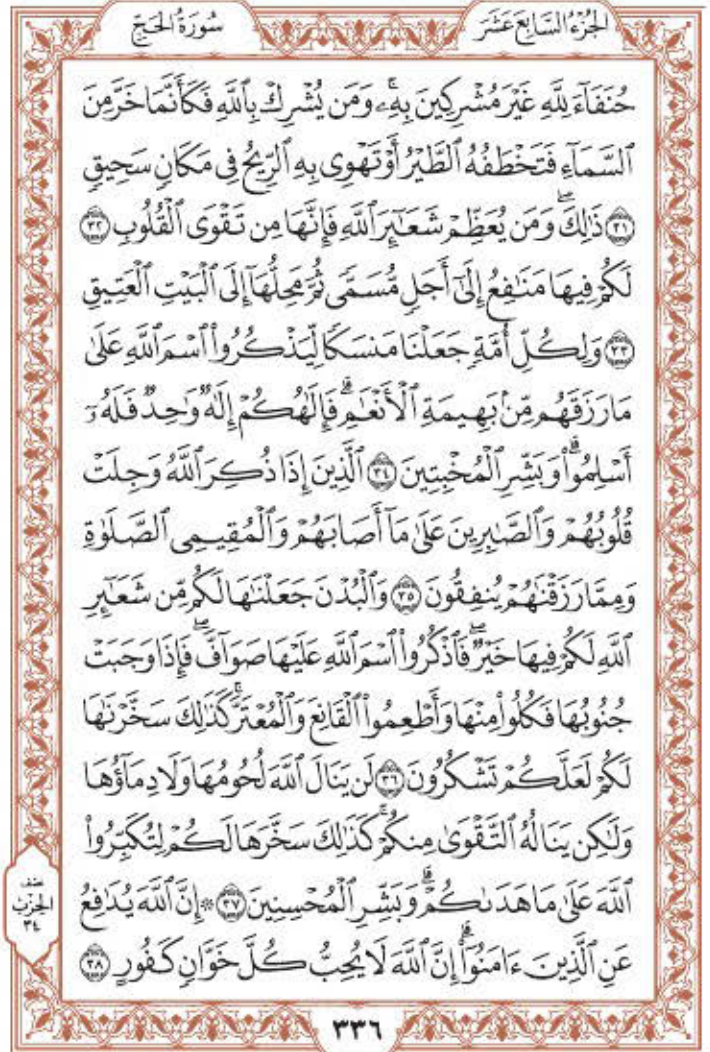 الجُزْءُ السَّابِعَ عَشَرَ
سُورَةُ الحَجِّ
حُنَفَآءَ لِلَّهِ غَيْرَ مُشْرِكِينَ بِهِۦۚ وَمَن يُشْرِكْ بِٱللَّهِ فَكَأَنَّمَا خَرَّ مِنَ
ٱلسَّمَآءِ فَتَخْطَفُهُ ٱلطَّيْرُ أَوْ تَهْوِى بِهِ ٱلرِّيحُ فِى مَكَانٍ سَحِيقٍ
٣١ ذَٰلِكَۖ وَمَن يُعَظِّمْ شَعَٰٓئِرَ ٱللَّهِ فَإِنَّهَا مِن تَقْوَى ٱلْقُلُوبِ ٣٢
لَكُمْ فِيهَا مَنَٰفِعُ إِلَىٰٓ أَجَلٍ مُّسَمًّى ثُمَّ مَحِلُّهَآ إِلَى ٱلْبَيْتِ ٱلْعَتِيقِ
٣٣ وَلِكُلِّ أُمَّةٍ جَعَلْنَا مَنسَكًا لِّيَذْكُرُوا۟ ٱسْمَ ٱللَّهِ عَلَىٰ
مَا رَزَقَهُم مِّنۢ بَهِيمَةِ ٱلْأَنْعَٰمِۗ فَإِلَٰهُكُمْ إِلَٰهٌ وَٰحِدٌ فَلَهُۥٓ
أَسْلِمُوا۟ۗ وَبَشِّرِ ٱلْمُخْبِتِينَ ٣٤ ٱلَّذِينَ إِذَا ذُكِرَ ٱللَّهُ وَجِلَتْ
قُلُوبُهُمْ وَٱلصَّٰبِرِينَ عَلَىٰ مَآ أَصَابَهُمْ وَٱلْمُقِيمِى ٱلصَّلَوٰةِ
وَمِمَّا رَزَقْنَٰهُمْ يُنفِقُونَ ٣٥ وَٱلْبُدْنَ جَعَلْنَٰهَا لَكُم مِّن شَعَٰٓئِرِ
ٱللَّهِ لَكُمْ فِيهَا خَيْرٌۖ فَٱذْكُرُوا۟ ٱسْمَ ٱللَّهِ عَلَيْهَا صَوَآفَّۖ فَإِذَا وَجَبَتْ
جُنُوبُهَا فَكُلُوا۟ مِنْهَا وَأَطْعِمُوا۟ ٱلْقَانِعَ وَٱلْمُعْتَرَّۚ كَذَٰلِكَ سَخَّرْنَٰهَا
لَكُمْ لَعَلَّكُمْ تَشْكُرُونَ ٣٦ لَن يَنَالَ ٱللَّهَ لُحُومُهَا وَلَا دِمَآؤُهَا
وَلَٰكِن يَنَالُهُ ٱلتَّقْوَىٰ مِنكُمْۚ كَذَٰلِكَ سَخَّرَهَا لَكُمْ لِتُكَبِّرُوا۟
ٱللَّهَ عَلَىٰ مَا هَدَىٰكُمْۗ وَبَشِّرِ ٱلْمُحْسِنِينَ ٣٧ ۞ إِنَّ ٱللَّهَ يُدَٰفِعُ
عَنِ ٱلَّذِينَ ءَامَنُوٓا۟ۗ إِنَّ ٱللَّهَ لَا يُحِبُّ كُلَّ خَوَّانٍ كَفُورٍ ٣٨
نصف
الحِزْب
٣٤
٣٣٦